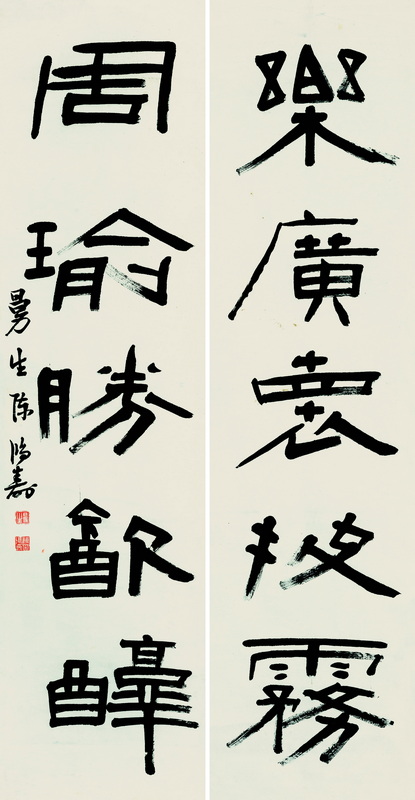 樂廣褱披霧
周瑜勝㱃醇
曼生陳鴻壽